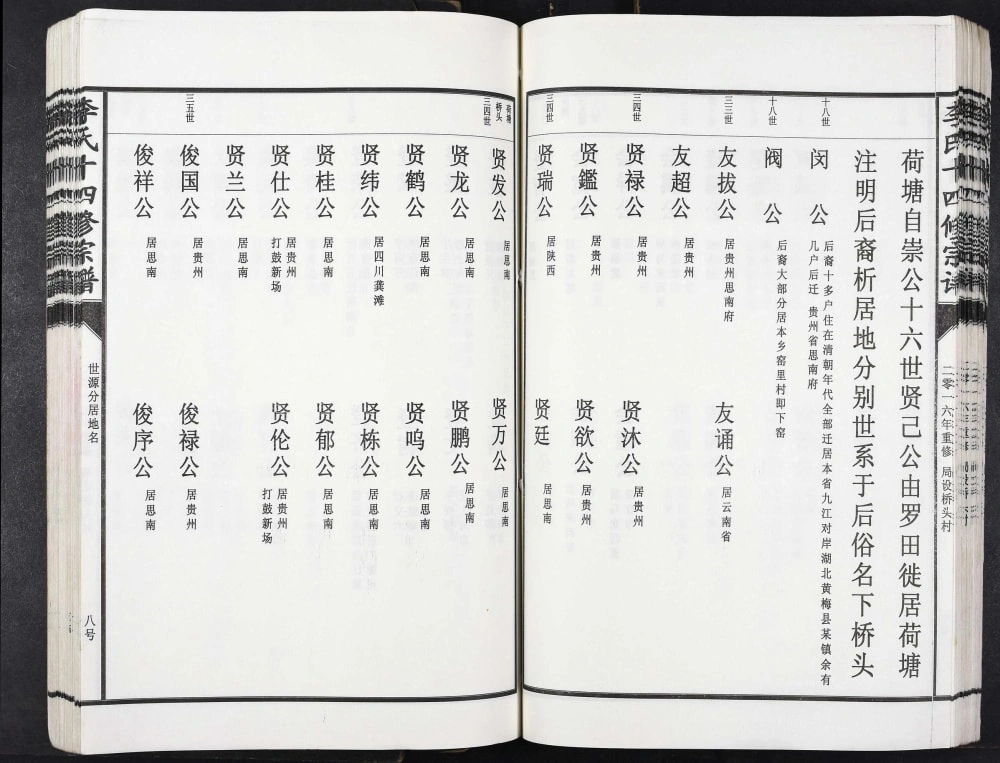 荷塘自崇公十六世贤己公由罗田徙居荷塘
注明后裔析居地分别世系于后俗名下桥头
十八世
闵公
后裔十多户住在清朝年代全部迁居本省九江对岸湖北黄梅县某镇余有
几户后迁 贵州省思南府
十八世
阀公
后裔大部分居本乡窑里村即下窑
三三世
友拔公 居贵州思南府
友诵公 居云南省
友超公 居贵州
三四世
贤禄公 居贵州
贤沐公 居贵州
贤鑑公 居贵州
贤欲公 居贵州
三四世
贤瑞公 居陕西
贤廷 居思南
二零一六年重修 局设桥头村
荷塘
桥头
三四世
贤发公 居思南
贤万公 居思南
贤龙公 居思南
贤鹏公 居思南
贤鹤公 居思南
贤鸣公 居思南
贤纬公 居四川龚滩
贤栋公 居思南
贤桂公 居思南
贤郁公 居思南
贤仕公 居贵州
打鼓新场
贤伦公 居贵州
打鼓新场
贤兰公 居思南
三五世
俊国公 居贵州
俊禄公 居贵州
俊祥公 居思南
俊序公 居思南
李氏十四修宗谱
世源分居地名
八号